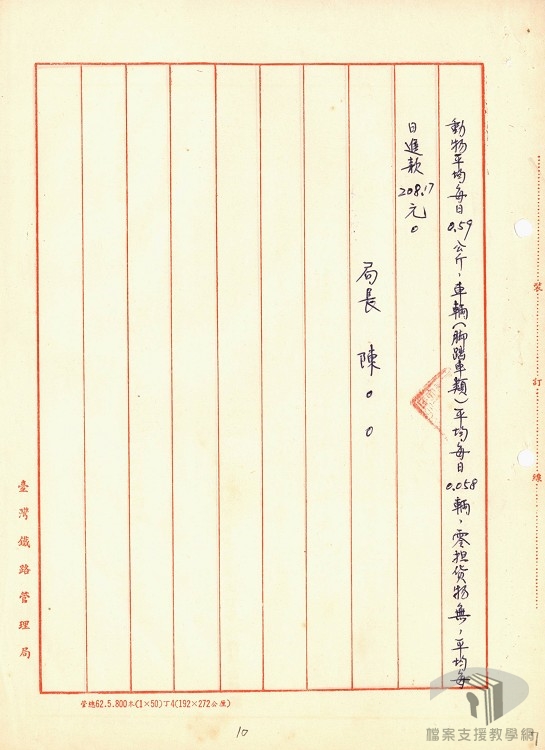 動物平均每日0.59公斤，車輛(脚踏車類)平均每日0.058輛，零担貨物無，平均每
日進款208.17元。
局長 陳○○
裝
訂
線
臺灣鐵路管理局
管總62.5.800本(1×50)丁4(192×272公厘)
10
檔案支援教學網